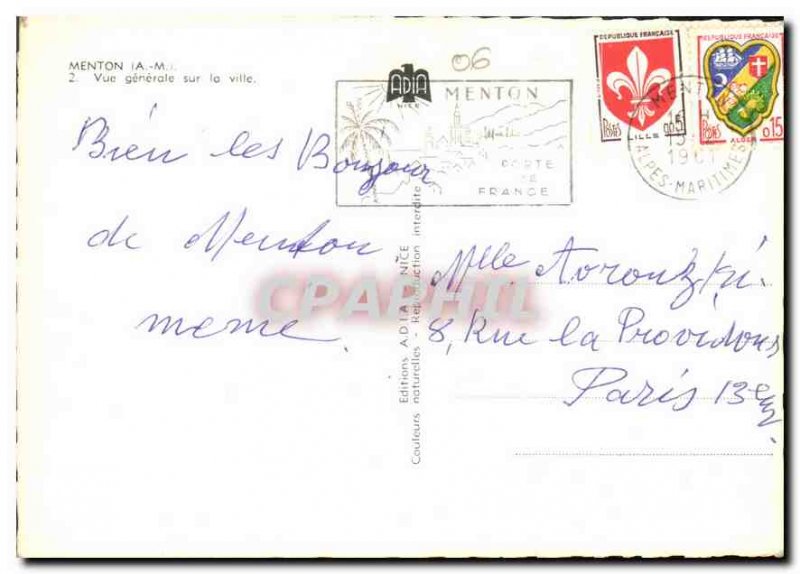 MENTON (A.-M.).
2. Vue générale sur la ville.
06
ADIA
NICE
MENTON
PORTE
DE
FRANCE
REPUBLIQUE FRANÇAISE
Postes
LILLE 0,05
REPUBLIQUE FRANÇAISE
Postes
ALGER 0,15
MENTON
ALPES-MARITIMES
Bien les Bonjour
de Menton
meme.
Editions A.D.I.A. NICE
Couleurs naturelles - Reproduction interdite
Mlle
8, Rue la Providons
Paris 13em
CPAPHIL